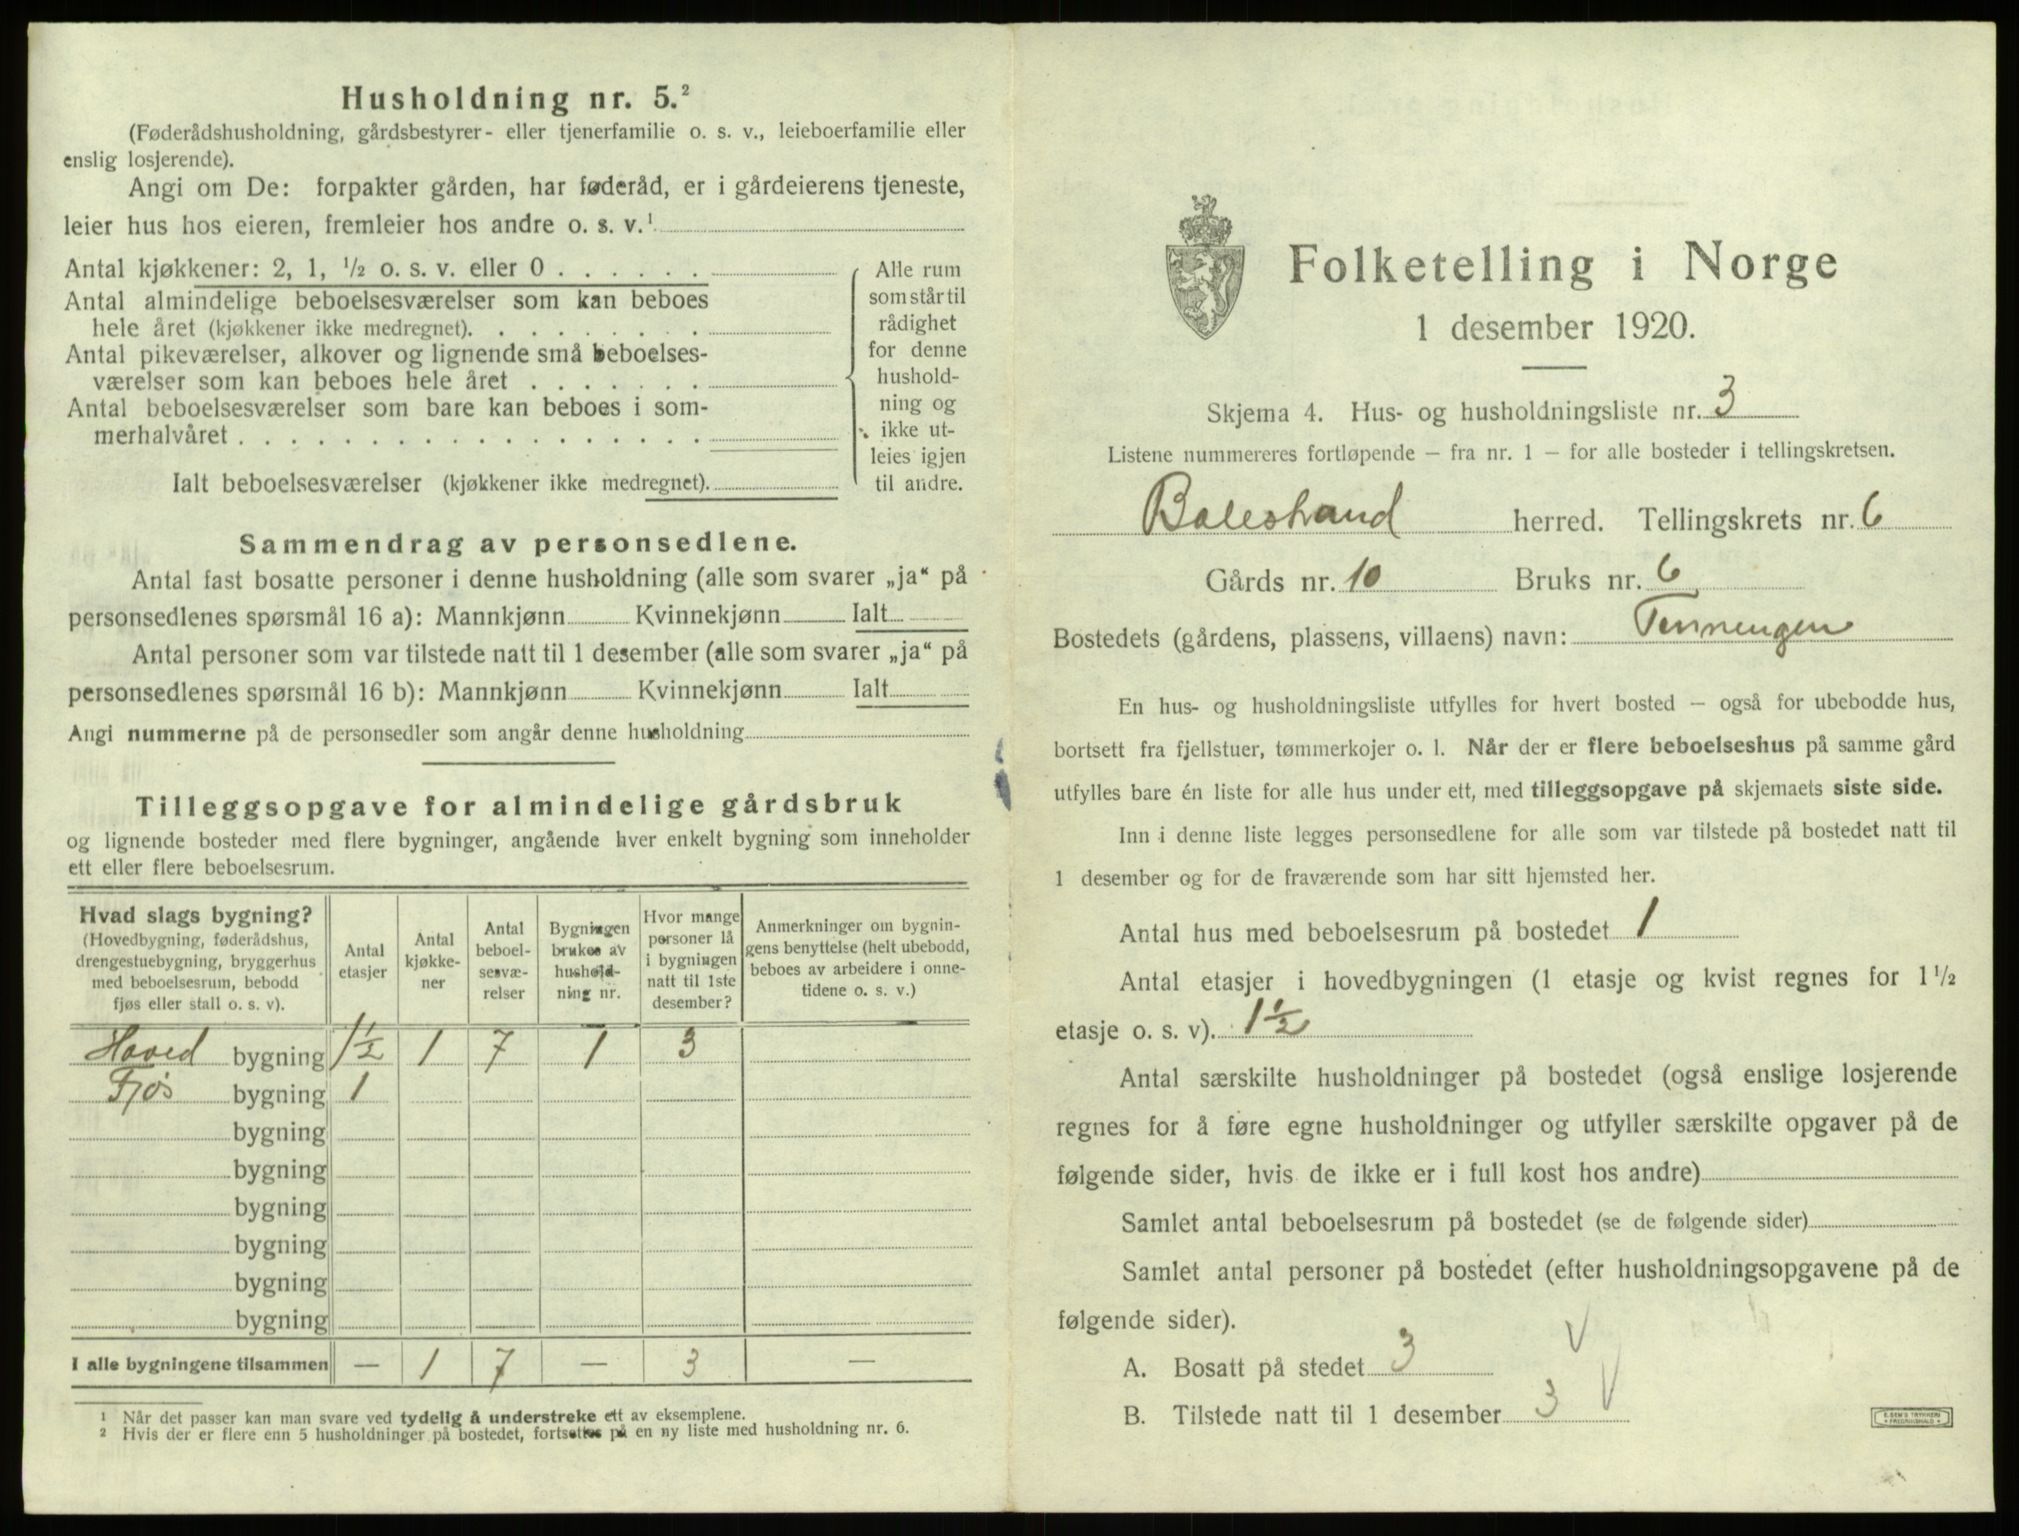 Husholdning nr. 5.²
(Føderådshusholdning, gårdsbestyrer- eller tjenerfamilie o. s. v., leieboerfamilie eller
enslig losjerende).
Angi om De: forpakter gården, har føderåd, er i gårdeierens tjeneste,
leier hus hos eieren, fremleier hos andre o. s. v.¹
Antal kjøkkener: 2, 1, ½ o. s. v. eller 0 . . . . . .
Antal almindelige beboelsesværelser som kan beboes
hele året (kjøkkener ikke medregnet). . . . . . . . . .
Antal pikeværelser, alkover og lignende små beboelses-
værelser som kan beboes hele året . . . . . . .
Antal beboelsesværelser som bare kan beboes i som-
merhalvåret . . . . . . . . . . . . . . . . . .
Ialt beboelsesværelser (kjøkkener ikke medregnet).
Alle rum
som står til
rådighet
for denne
hushold-
ning og
ikke ut-
leies igjen
til andre.
Sammendrag av personsedlene.
Antal fast bosatte personer i denne husholdning (alle som svarer „ja“ på
personsedlenes spørsmål 16 a): Mannkjønn Kvinnekjønn Ialt
Antal personer som var tilstede natt til 1 desember (alle som svarer „ja“ på
personsedlenes spørsmål 16 b): Mannkjønn Kvinnekjønn Ialt
Angi nummerne på de personsedler som angår denne husholdning
Tilleggsopgave for almindelige gårdsbruk
og lignende bosteder med flere bygninger, angående hver enkelt bygning som inneholder
ett eller flere beboelsesrum.
Hvad slags bygning?
(Hovedbygning, føderådshus,
drengestuebygning, bryggerhus
med beboelsesrum, bebodd
fjøs eller stall o. s. v).
Antal
etasjer
Antal
kjøkke-
ner
Antal
beboel-
sesvæ-
relser
Bygningen
brukes av
hushold-
ning nr.
Hvor mange
personer lå
i bygningen
natt til 1ste
desember?
Anmerkninger om bygnin-
gens benyttelse (helt ubebodd,
beboes av arbeidere i onne-
tidene o. s. v.)
Hoved bygning 1½ 1 7 1 3
Fjøs bygning 1
bygning
bygning
bygning
bygning
bygning
bygning
I alle bygningene tilsammen — 1 7 — 3 —
¹ Når det passer kan man svare ved tydelig å understreke ett av eksemplene.
² Hvis der er flere enn 5 husholdninger på bostedet, fortsettes på en ny liste med husholdning nr. 6.
Folketelling i Norge
1 desember 1920.
Skjema 4. Hus- og husholdningsliste nr. 3
Listene nummereres fortløpende – fra nr. 1 – for alle bosteder i tellingskretsen.
Balestrand herred. Tellingskrets nr. 6
Gårds nr. 10 Bruks nr. 6
Bostedets (gårdens, plassens, villaens) navn: Tenningen
En hus- og husholdningsliste utfylles for hvert bosted – også for ubebodde hus,
bortsett fra fjellstuer, tømmerkojer o. l. Når der er flere beboelseshus på samme gård
utfylles bare én liste for alle hus under ett, med tilleggsopgave på skjemaets siste side.
Inn i denne liste legges personsedlene for alle som var tilstede på bostedet natt til
1 desember og for de fraværende som har sitt hjemsted her.
Antal hus med beboelsesrum på bostedet 1
Antal etasjer i hovedbygningen (1 etasje og kvist regnes for 1½
etasje o. s. v). 1½
Antal særskilte husholdninger på bostedet (også enslige losjerende
regnes for å føre egne husholdninger og utfyller særskilte opgaver på de
følgende sider, hvis de ikke er i full kost hos andre)
Samlet antal beboelsesrum på bostedet (se de følgende sider)
Samlet antal personer på bostedet (efter husholdningsopgavene på de
følgende sider).
A. Bosatt på stedet 3 V
B. Tilstede natt til 1 desember 3 V
E. SEM'S TRYKKERI
FREDRIKSHALD